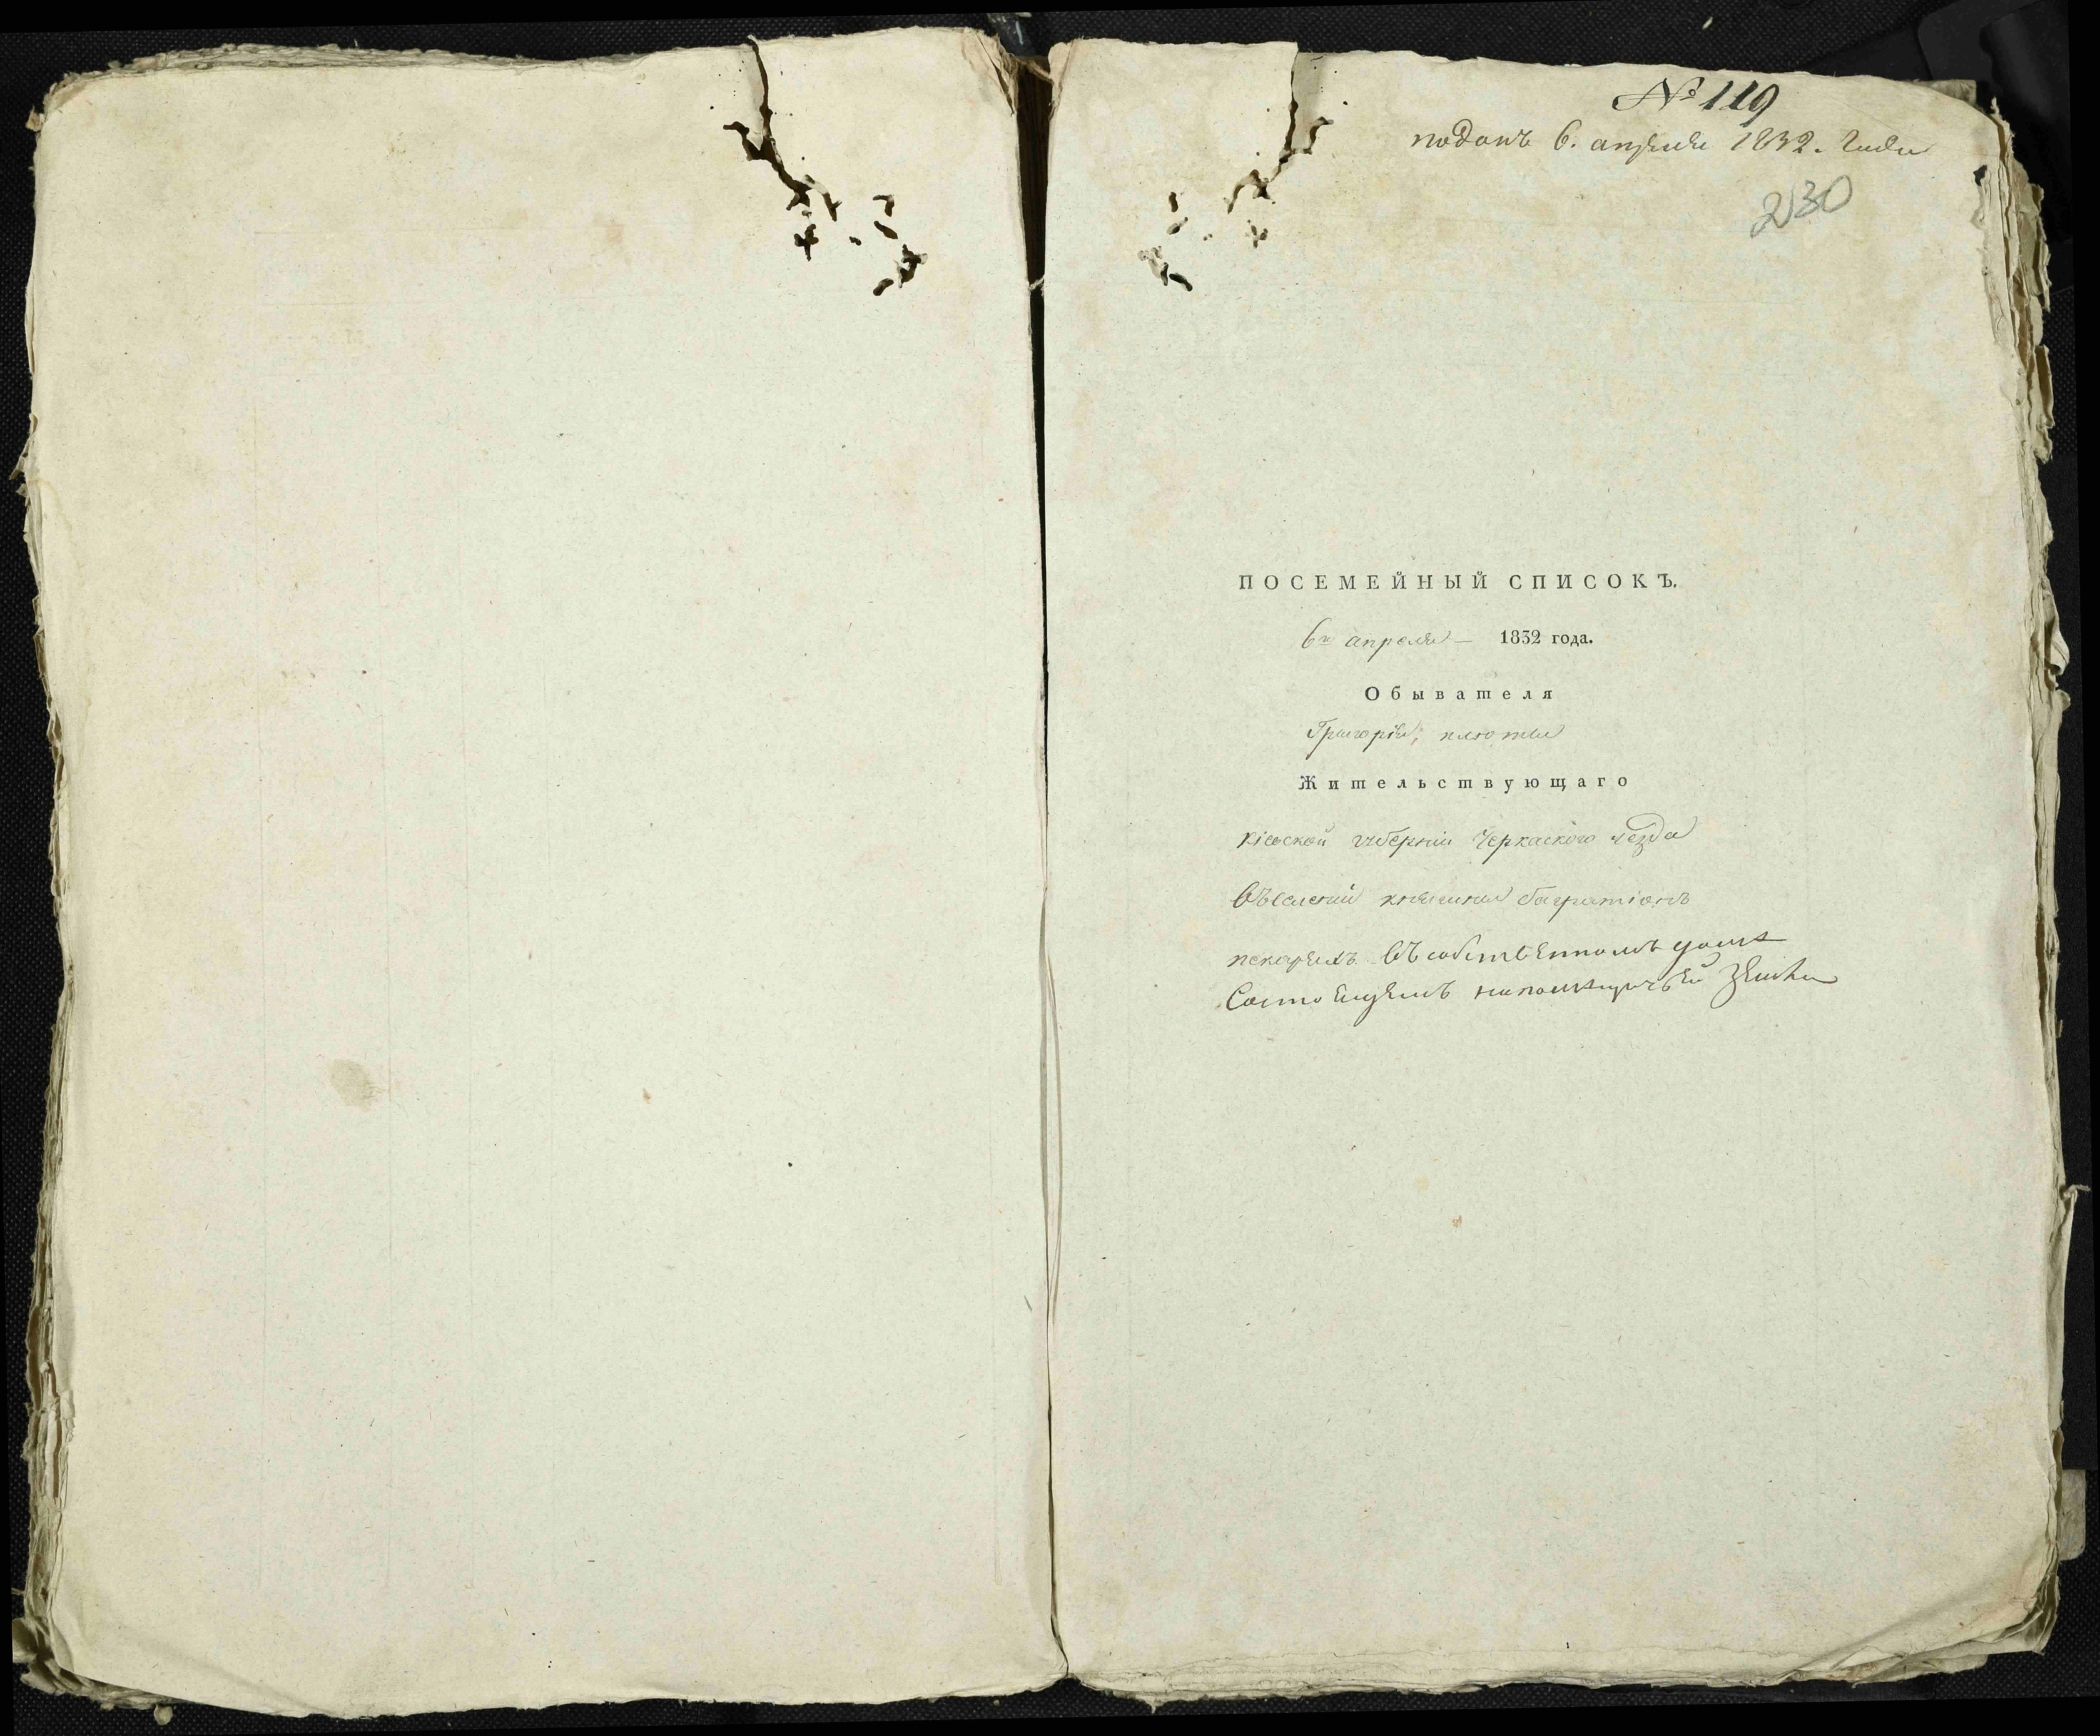 № 119
поданъ 6. апреля 1832. года
230
ПОСЕМЕЙНЫЙ СПИСОКЪ.
6го апреля — 1832 года.
Обывателя
Григорія, плюты
Жительствующаго
Кіевской губерніи Черкаского уезда
въселеніи княгини багратіонъ
пекаряхъ въ собственномъ доме
Состоящемъ напомещичьей Земли